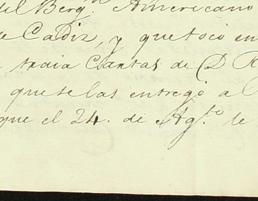 del Berg.ⁿ Americano
e Cadiz, y que tocó en
traia Cartas de D. R
que se las entregó a
que el 24. de Ag.to le